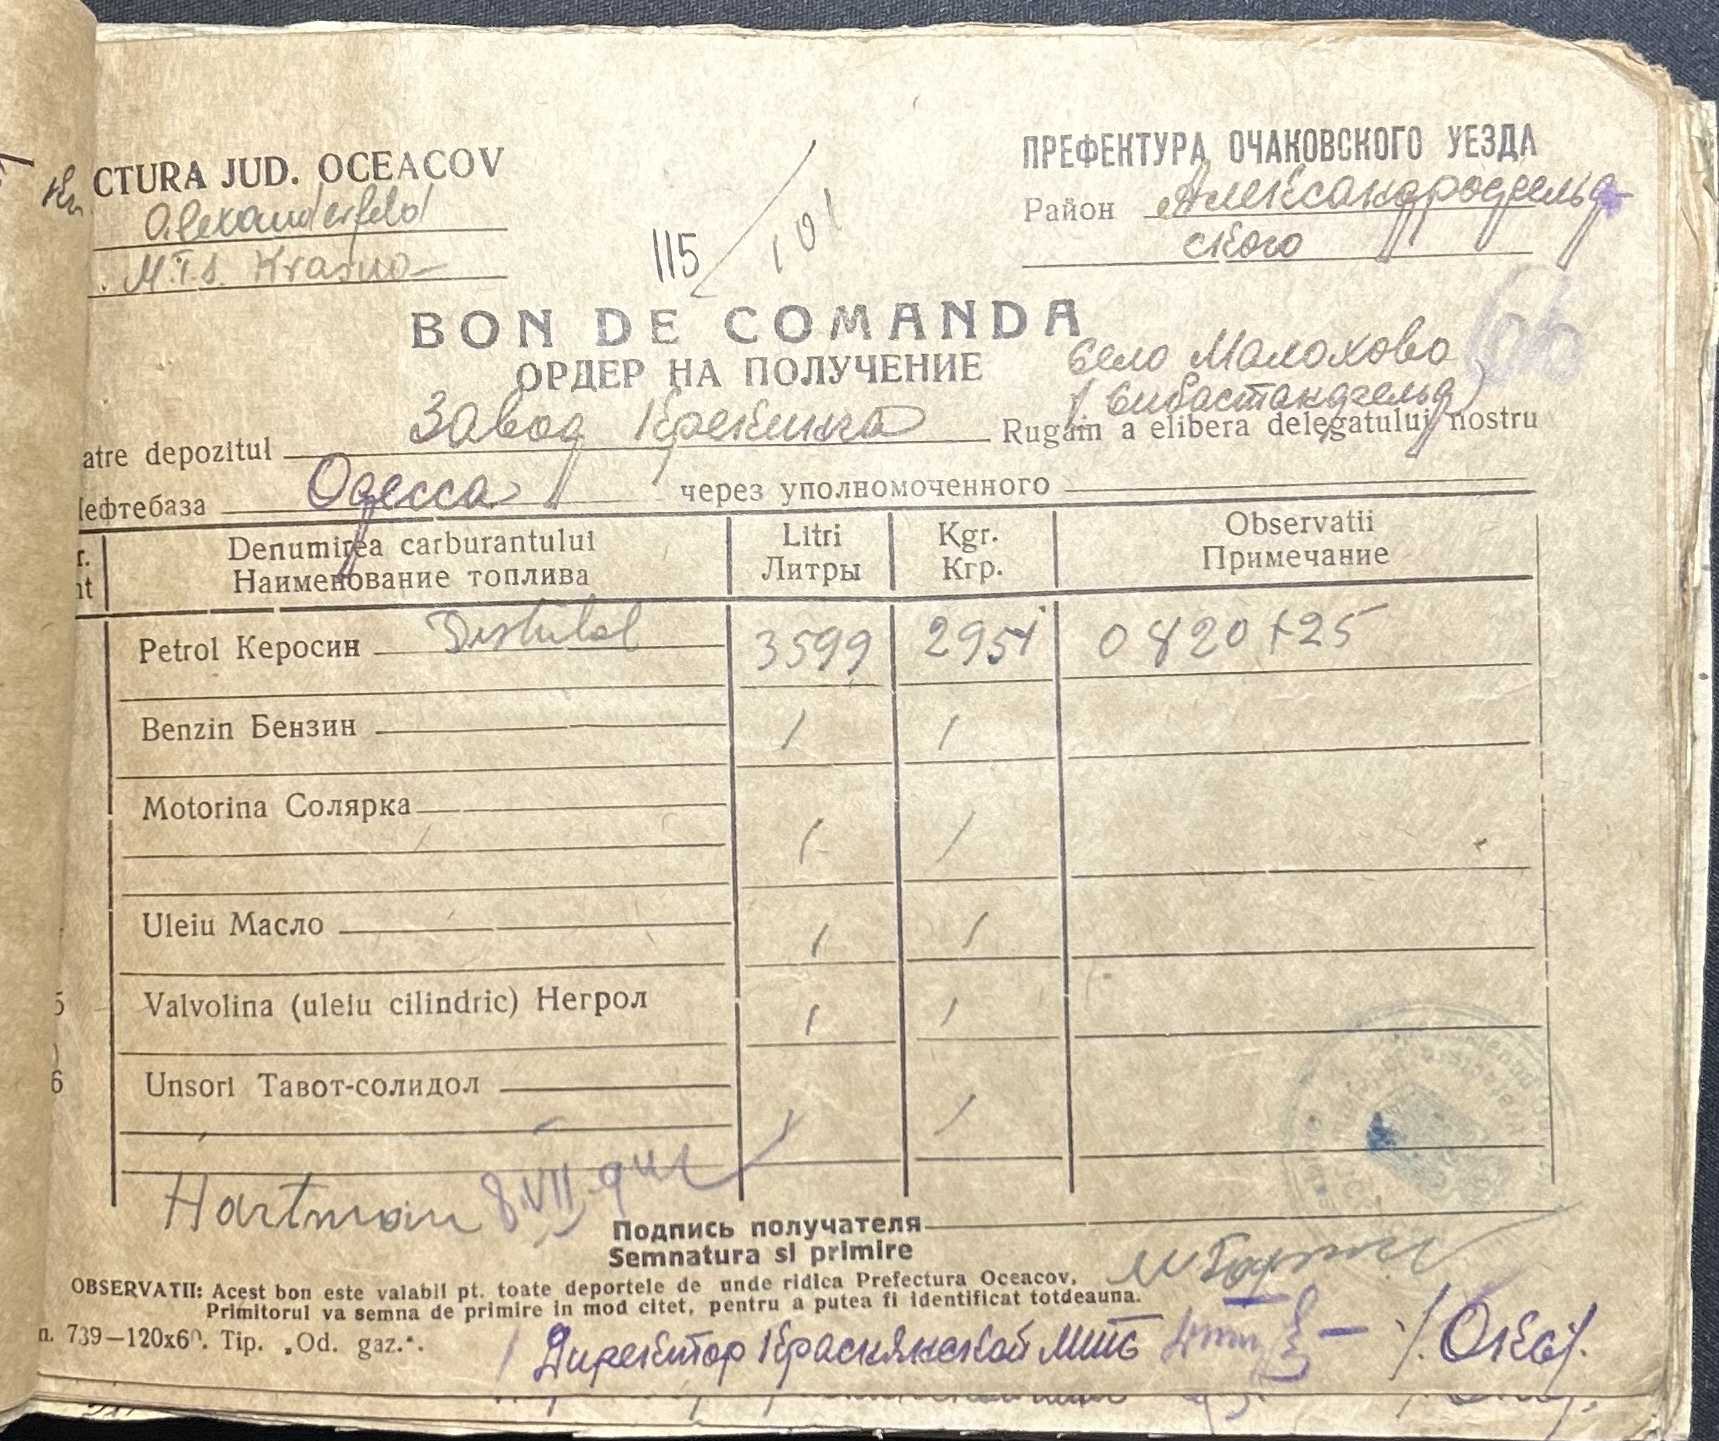 CTURA JUD. OCEACOV
Alexanderfeld
M.T.S. Krasno-
115/101
ПРЕФЕКТУРА ОЧАКОВСКОГО УЕЗДА
Район Александрфельд-
ского
BON DE COMANDA
ОРДЕР НА ПОЛУЧЕНИЕ
село Малахово
atre depozitul Завод Крекинга Rugăm a elibera delegatului nostru
Нефтебаза Одесса через уполномоченного
r. Denumirea carburantului Litri Kgr. Observatii
nt Наименование топлива Литры Кгр. Примечание
Petrol Керосин Distilat 3599 2951 0820 +25
Benzin Бензин / /
Motorina Солярка / /
Uleiu Масло / /
5 Valvolina (uleiu cilindric) Негрол / /
6 Unsori Тавот-солидол / /
Hartman 8.VII.
Подпись получателя
Semnatura si primire
OBSERVATII: Acest bon este valabil pt. toate deportele de unde ridica Prefectura Oceacov.
Primitorul va semna de primire in mod citet, pentru a putea fi identificat totdeauna.
n. 739—120x60. Tip. „Od. gaz.“.
Директор Краснянской МТС